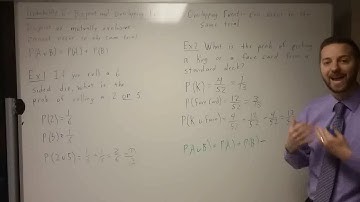 Disjoint and Overlapping
Disjoint or mutually exclusive
cannot occur in the same trial
P(A∪B) = P(A) + P(B)
Ex] If you roll a 6
sided die, what is the
prob of rolling a 2 or 5
P(2) = 1/6
P(5) = 1/6
P(2∪5) = 1/6 + 1/6 = 2/6 = 1/3
Overlapping Events can occur in the
same trial
Ex] What is the prob of picking
a King or a Face card from a
standard deck?
P(K) = 4/52 = 1/13
P(Face Card) = 12/52 = 3/13
P(K∪Face) = 4/52 + 12/52
P(A∪B) = P(A) + P(B) -